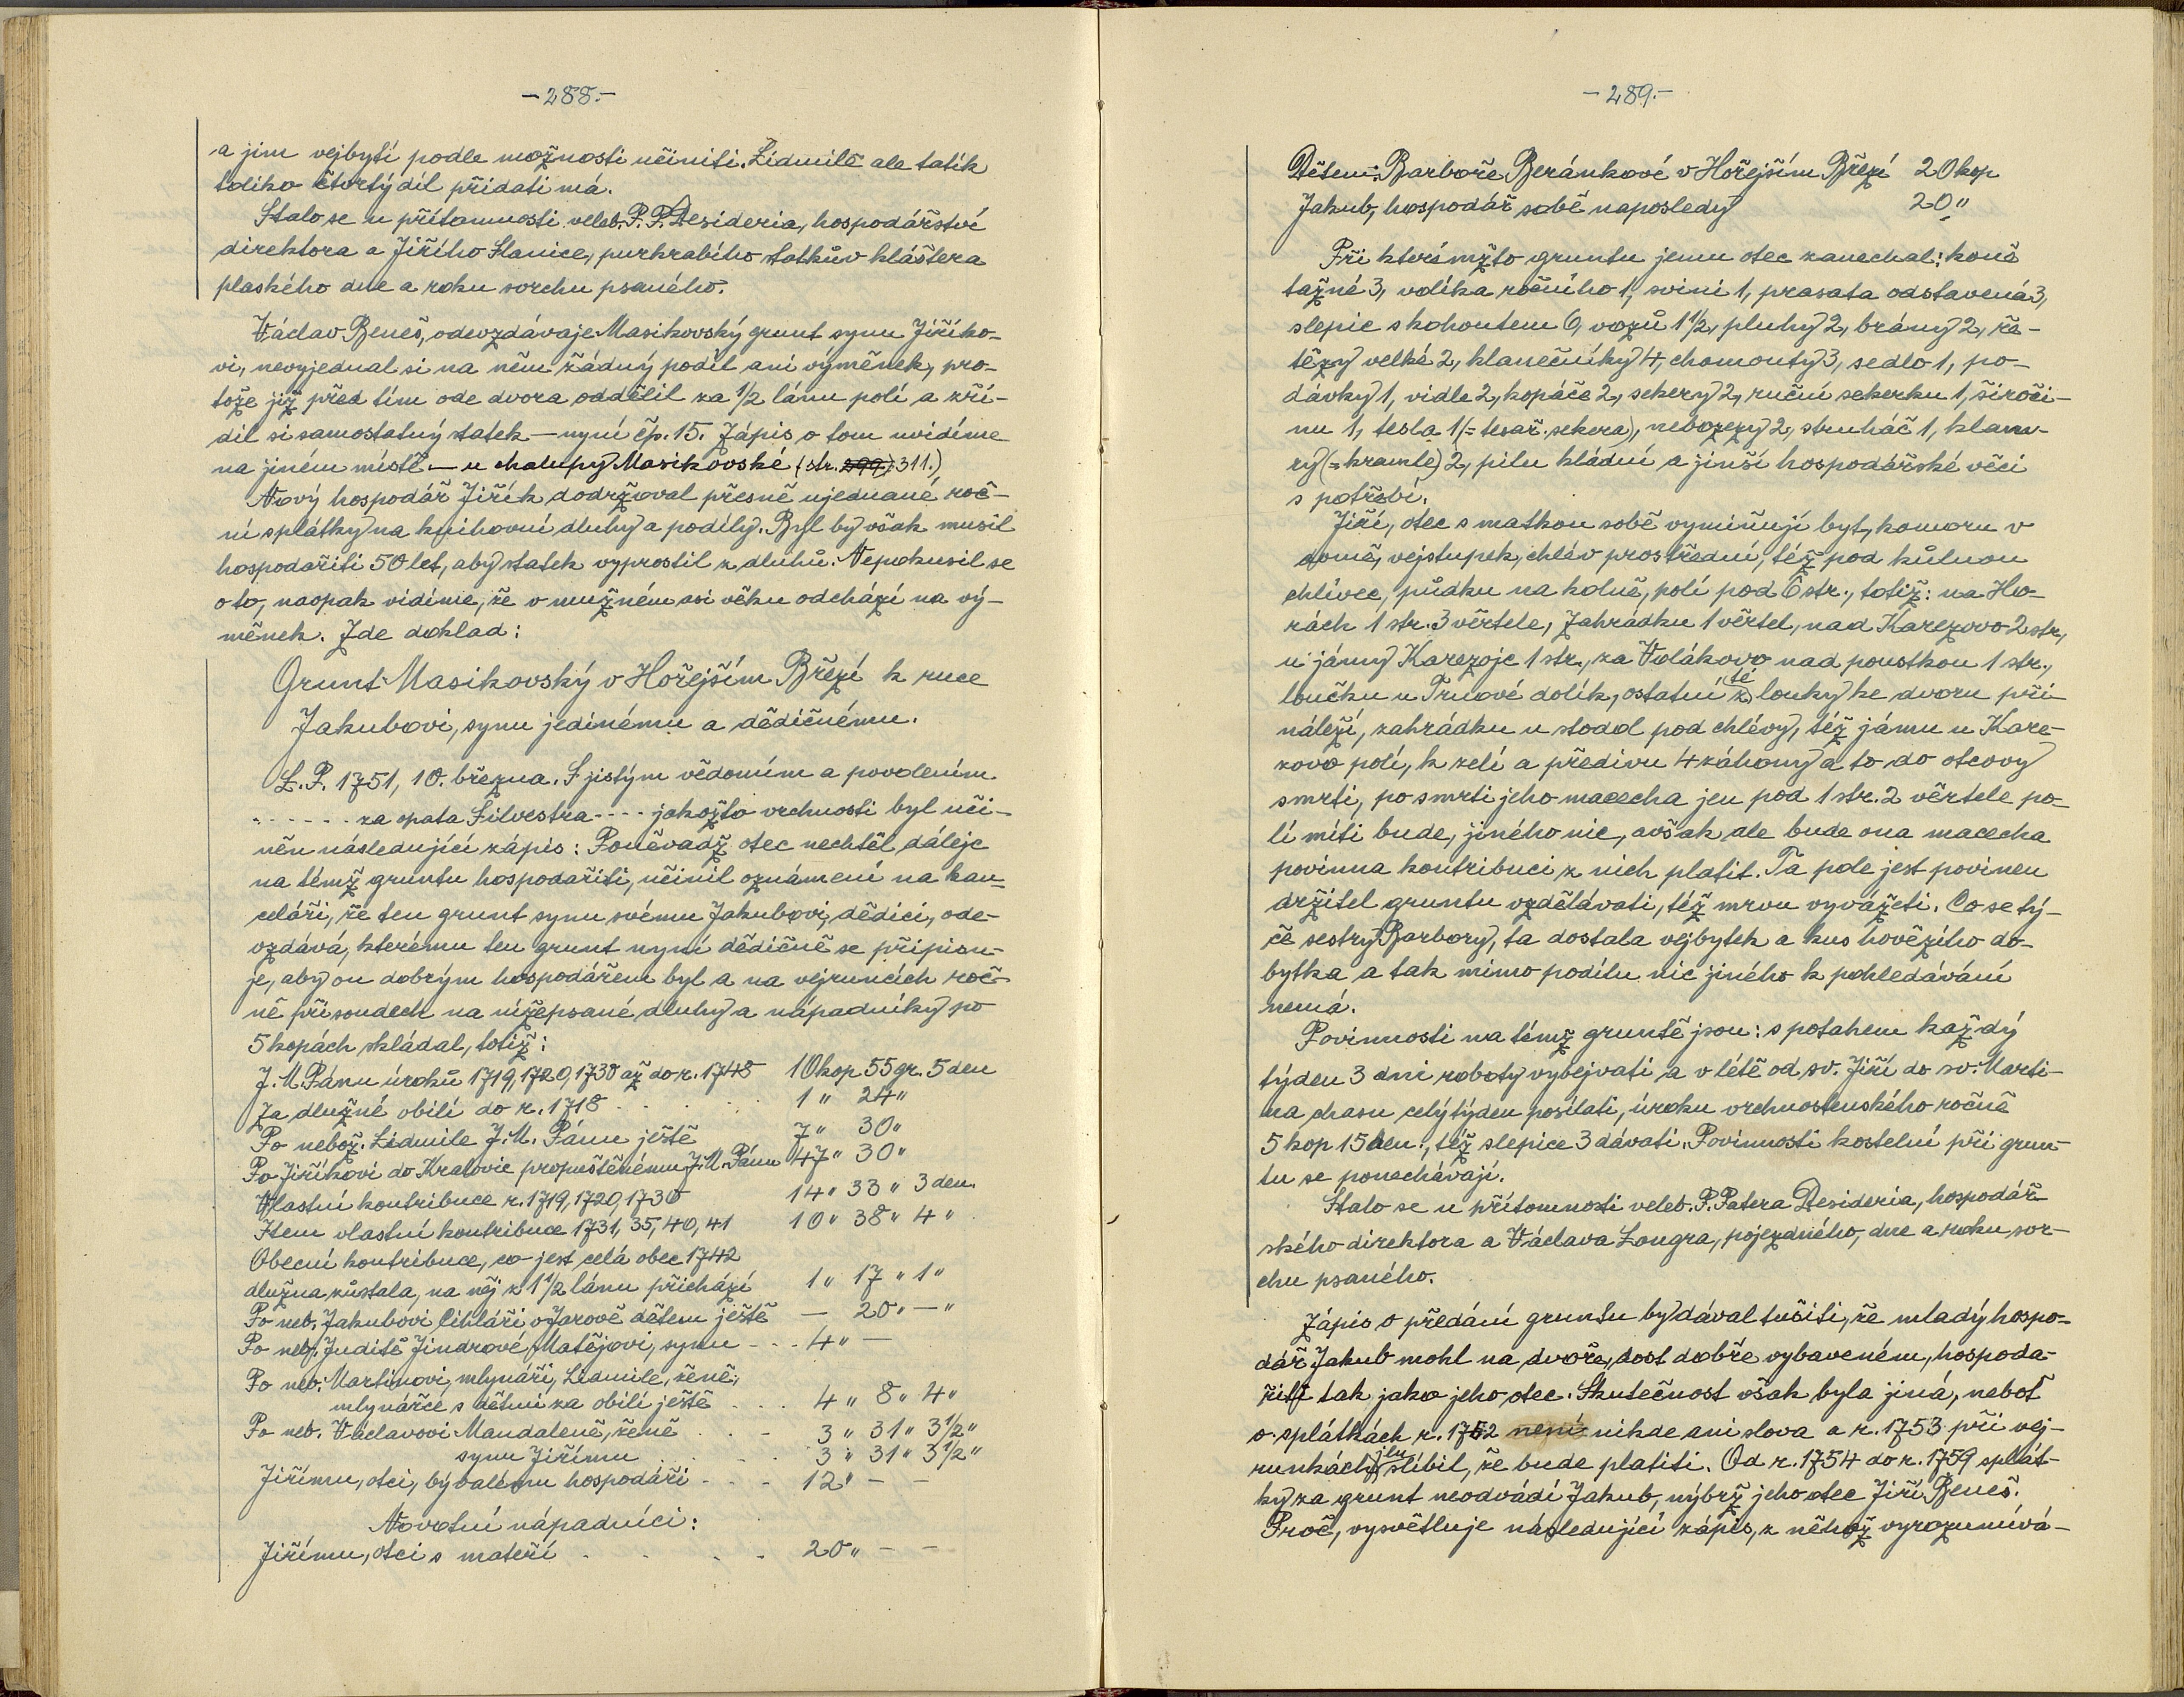 -288.-
a jim vejbytí podle možnosti učiniti. Lidmile ale tatík
toliko čtvrtý díl přidati má.
Stalo se u přítomnosti veleb. P. P. Desideria, hospodářství
direktora a Jiřího Slanice, purkrabího statkův kláštera
plaského dne a roku svrchu psaného.
Václav Beneš, odevzdávaje Masikovský grunt synu Jiříko-
vi, nevyjednal si na něm žádný podíl ani výměnek, pro-
tože již před tím ode dvora oddělil za 1/2 lánu polí a zří-
dil si samostatný statek — nyní čp. 15. Zápis o tom uvidíme
na jiném místě — u chalupy Masikovské (str. 299) 311.)
Nový hospodář Jiřík dodržoval přesně ujednané roč-
ní splátky na knihovní dluhy a podíly. Byl by však musil
hospodařiti 50 let, aby statek vyprostil z dluhů. Nepokusil se
o to, naopak vidíme, že v mužném asi věku odchází na vý-
měnek. Zde doklad:
Grunt Masikovský v Hořejším Březí k ruce
Jakubovi, synu jedinému a dědičnému.
L. P. 1751, 10. března. S jistým vědomím a povolením
. - - - - - za opata Silvestra - - - - jakožto vrchnosti byl uči-
něn následující zápis: Poněvadž otec nechtěl dáleje
na témž gruntu hospodařiti, učinil oznámení na kan-
celáři, že ten grunt synu svému Jakubovi, dědici, ode-
vzdává, kterému ten grunt nyní dědičně se připisu-
je, aby on dobrým hospodářem byl a na vejruncích roč-
ně při soudech na nížepsané dluhy a nápadníky po
5 kopách skládal, totiž:
J. M. Pánu úroků 1719, 1720, 1730 až do r. 1748 10 kop 55 gr. 5 den
Za dlužné obilí do r. 1718 . . . . 1 " 24 "
Po nebož. Lidmile J. M. Pánu ještě 7 " 30 "
Po Jiříkovi do Kralovic propuštěnému J. M. Pánu 47 " 30 "
Vlastní kontribuce r. 1719, 1720, 1730 14 " 33 " 3 den.
Item vlastní kontribuce 1731, 35, 40, 41 10 " 38 " 4 "
Obecní kontribuce, co jest celá obec 1742
dlužna zůstala, na něj z 1 1/2 lánu přichází 1 " 17 " 1 "
Po neb. Jakubovi Cihláři v Jarově dětem ještě — 20 " — "
Po neb. Juditě Jindrové, Matějovi, synu - - - 4 " —
Po neb. Martinovi, mlynáři, Lidmile, ženě,
mlynářce s dětmi za obilí ještě . . . 4 " 8 " 4 "
Po neb. Václavovi Mandaleně, ženě . . - 3 " 31 " 3 1/2 "
synu Jiřímu . . . . 3 " 31 " 3 1/2 "
Jiřímu, otci, bývalému hospodáři - - - 12 " — —
Novotní nápadníci:
Jiřímu, otci s mateří . . . - 20 " — —
-289.-
Dětem: Barboře Beránkové v Hořejším Březí 20 kop
Jakub, hospodář sobě naposledy 20 "
Při kterémžto gruntu jemu otec zanechal: koně
tažné 3, volíka ročního 1, svini 1, prasata odstavená 3,
slepic s kohoutem 6, vozů 1 1/2, pluhy 2, brány 2, ře-
tězy velké 2, klanečníky 4, chomouty 3, sedlo 1, po-
dávky 1, vidle 2, kopáče 2, sekery 2, ruční sekerku 1, široči-
nu 1, tesla 1 (= tesař. sekera), nebozezy 2, struháč 1, klam-
ry (= kramle) 2, pilu kládní a jinší hospodářské věci
s potřebí.
Jiří, otec s matkou sobě vymiňují byt, komoru v
domě, vejstupek, chlév prostřední, též pod kůlnou
chlívec, půdku na kolně, polí pod 6 str., totiž: na Ho-
rách 1 str. 3 věrtele, Zahrádku 1 věrtel, nad Karezovo 2 str.,
u jámy Karezoje 1 str., za Volákovo nad poustkou 1 str.,
loučku u Trnové dolík, ostatní té k louky ke dvoru při-
náleží, zahrádku u stodol pod chlévy, též jámu u Kare-
zovo polí, k zelí a předivu 4 záhony a to do otcovy
smrti, po smrti jeho macecha jen pod 1 str. 2 věrtele po-
lí míti bude, jiného nic, avšak ale bude ona macecha
povinna kontribuci z nich platit. Ta pole jest povinen
držitel gruntu vzdělávati, též mrvu vyvážeti. Co se tý-
če sestry Barbory, ta dostala vejbytek a kus hovězího do-
bytka a tak mimo podílu nic jiného k pohledávání
nemá.
Povinnosti na témž gruntě jsou: s potahem každý
týden 3 dni roboty vybejvati a v létě od sv. Jiří do sv. Marti-
na chasu celý týden posílati, úroku vrchnostenského ročně
5 kop 15 den., též slepice 3 dávati. Povinnosti kostelní při grun-
tu se ponechávají.
Stalo se u přítomnosti veleb. P. Patera Desideria, hospodář-
ského direktora a Václava Longra, pojezdného, dne a roku svr-
chu psaného.
Zápis o předání gruntu by dával tušiti, že mladý hospo-
dář Jakub mohl na dvoře, dost dobře vybaveném, hospoda-
řiti tak jako jeho otec. Skutečnost však byla jiná, neboť
o splátkách r. 1752 není nikde ani slova a r. 1753 při vej-
runkách jen slíbil, že bude platiti. Od r. 1754 do r. 1759 splát-
ky za grunt neodvádí Jakub, nýbrž jeho otec Jiří Beneš.
Proč, vysvětluje následující zápis, z něhož vyrozumívá-